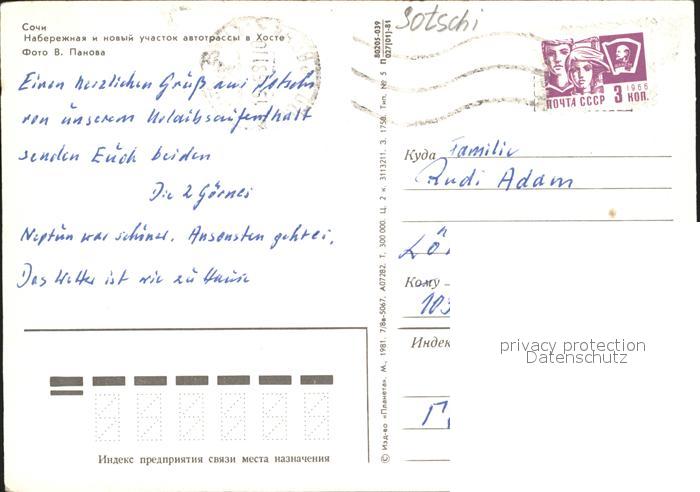 Сочи
Набережная и новый участок автотрассы в Хосте
Фото В. Панова
Einen herzlichen Gruß aus Sotschi
von unserem Urlaubsaufenthalt
senden Euch beiden
Die 2 Görnes
Neptun war schöner. Ansonsten geht ei,
Das Wetter ist wie zu Hause
Индекс предприятия связи места назначения
© Изд-во «Планета». М., 1981. 7/8в-5067. А07282. Т. 300 000. Ц. 2 к. 3113211. З. 1750. Тип. № 5
80205-039
027(01)-81
Sotschi
ПОЧТА СССР 3 КОП.
1966
Куда Familie
Rudi Adam
Кому
103
Индек
privacy protection
Datenschutz